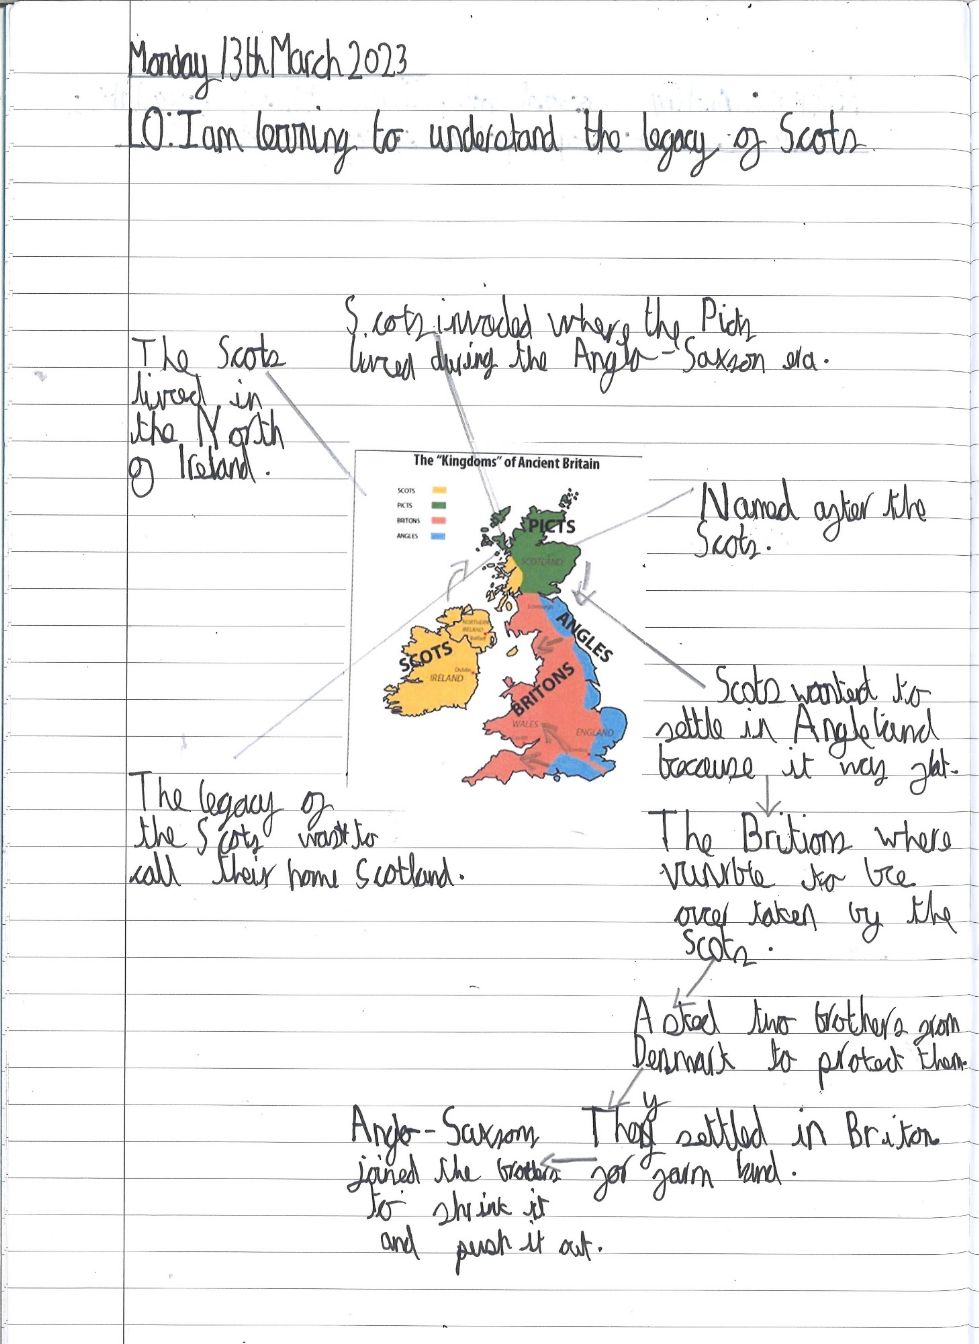 Monday 13th March 2023
LO: I am learning to understand the legacy of Scots
Scots invaded where the Picts
lived during the Anglo-Saxson era.
The Scots
lived in
the North
of Ireland.
The "Kingdoms" of Ancient Britain
SCOTS
PICTS
BRITONS
ANGLES
PICTS
SCOTLAND
Edinburgh
ANGLES
NORTHERN
IRELAND
Belfast
SCOTS
Dublin
IRELAND
BRITONS
WALES
ENGLAND
London
Named after the
Scots.
Scots wanted to
settle in Angleland
because it was flat.
The legacy of
the Scots was to
call their home Scotland.
The Britions where
to be
over taken by the
Scots.
Asked two brothers from
Denmark to protect them.
They settled in Briton
for farm land.
Anglo-Saxson
joined the brothers
to shrink it
and push it out.